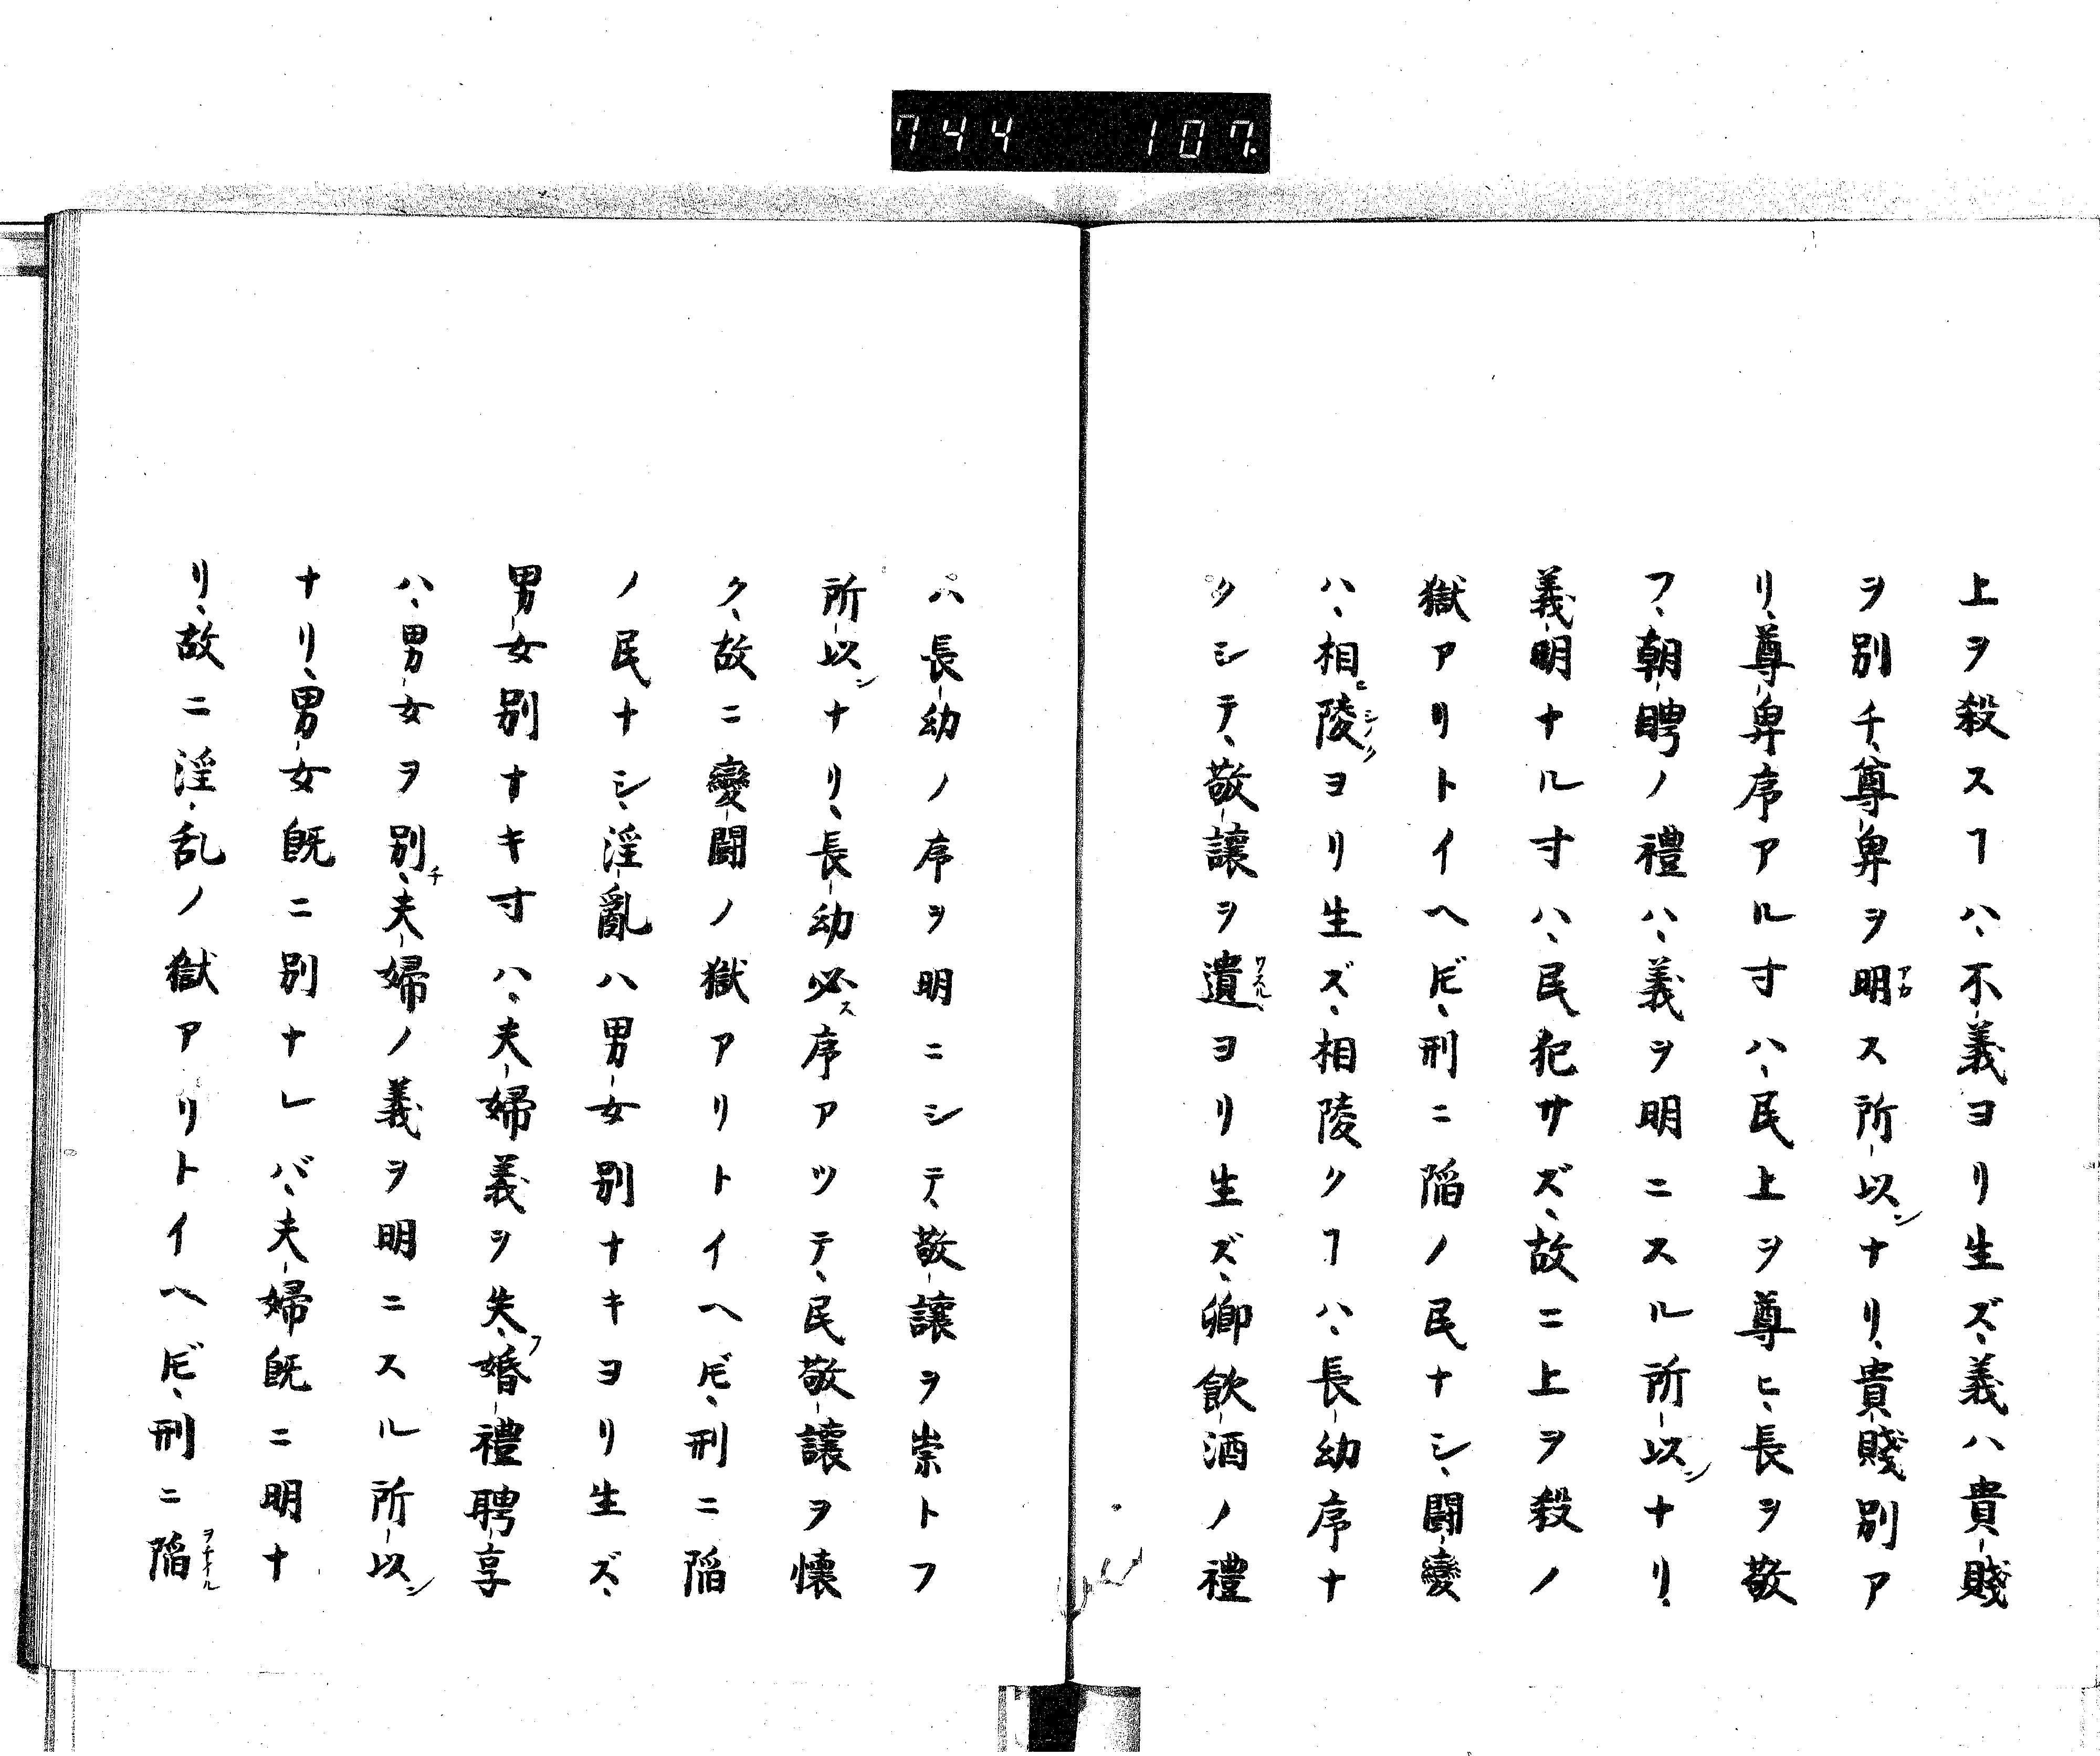 744 107.
上ヲ殺スヿハ、不義ヨリ生ズ、義ハ貴賤
ヲ別チ、尊卑ヲ明アカス所以ンナリ、貴賤別ア
リ、尊卑序アル寸ハ、民上ヲ尊ヒ、長ヲ敬
フ、朝聘ノ禮ハ、義ヲ明ニスル所以ンナリ、
義明ナル寸ハ、民犯サズ、故ニ上ヲ殺ノ
獄アリトイヘ𪜈、刑ニ陷ノ民ナシ、鬪變
ハ、相ヒ陵シノクヨリ生ズ、相陵クヿハ、長幼序ナ
クシテ、敬讓ヲ遺ワスルヽヨリ生ズ、卿飲酒ノ禮
ハ長幼ノ序ヲ明ニシテ、敬讓ヲ崇トフ
所以ンナリ、長幼必ス序アツテ、民敬讓ヲ懐
ク、故ニ變鬪ノ獄アリトイヘ𪜈、刑ニ陷
ノ民ナシ、淫亂ハ男女別ナキヨリ生ズ、
男女別ナキ寸ハ、夫婦義ヲ失フ、婚禮聘享
ハ、男女ヲ別チ、夫婦ノ義ヲ明ニスル所以ン
ナリ、男女既ニ別ナレバ、夫婦既ニ明ナ
リ、故ニ淫乱ノ獄アリトイヘ𪜈、刑ニ陷ヲチイル